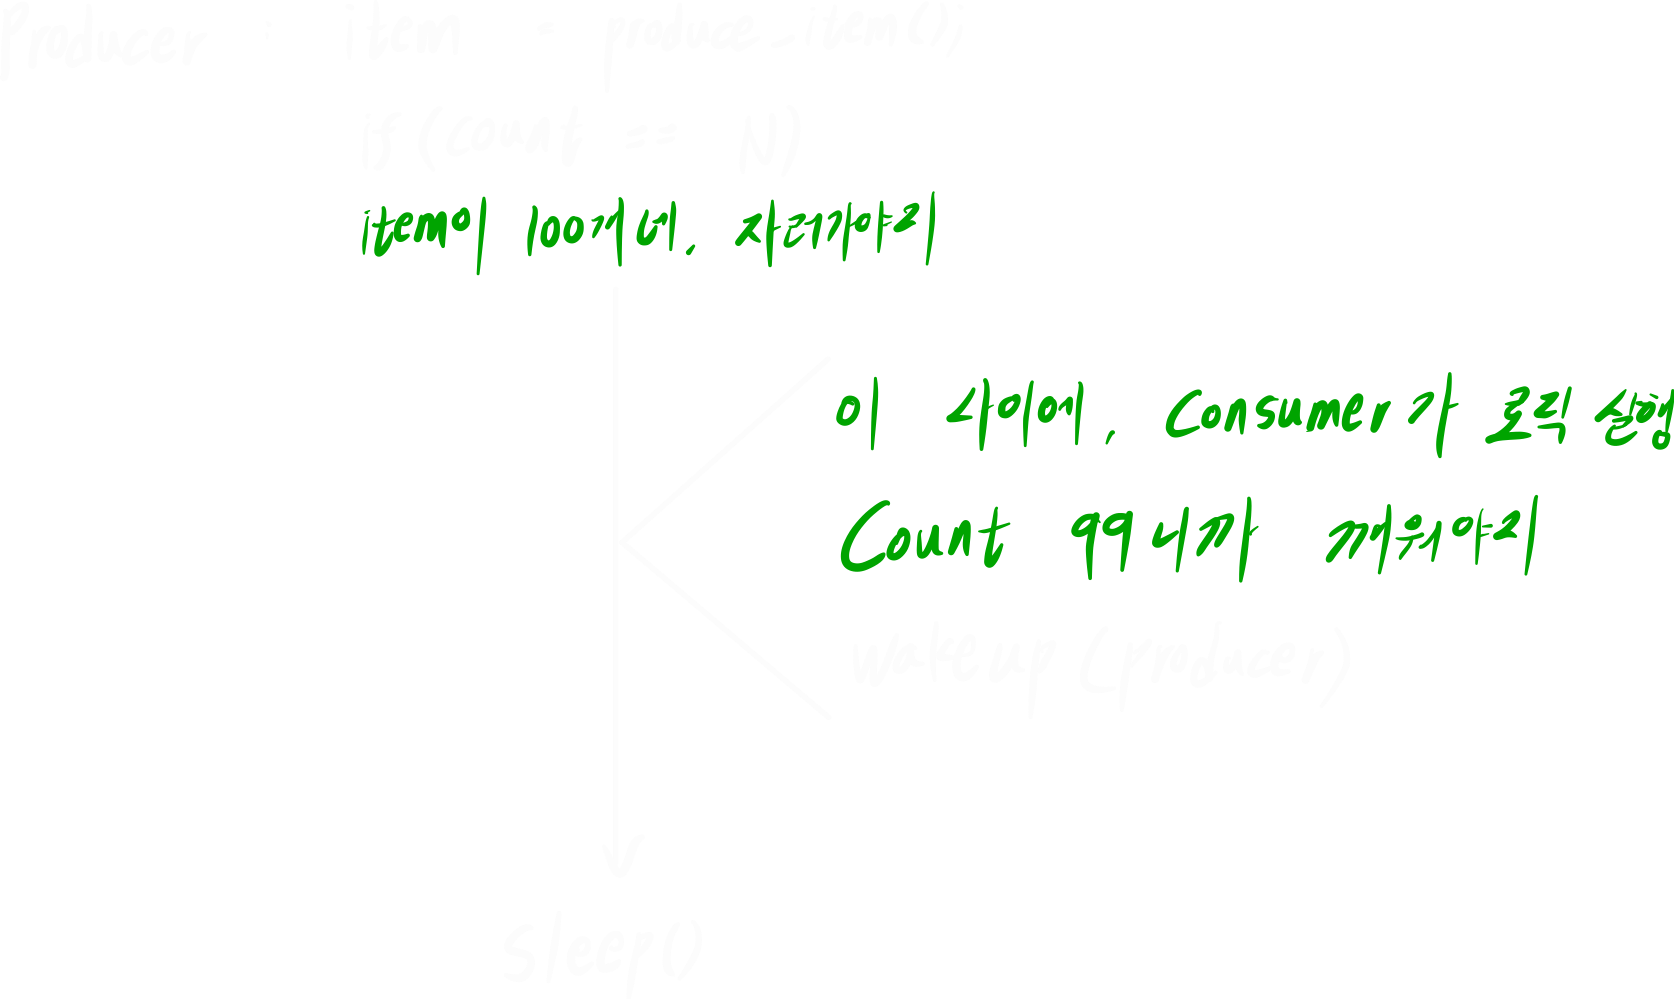 Producer : item = produce_item();
if (count == N)
item이 100개네. 자러가야지
이 사이에, Consumer가 로직 실행
Count 99니까 깨워야지
wakeup (producer)
Sleep()